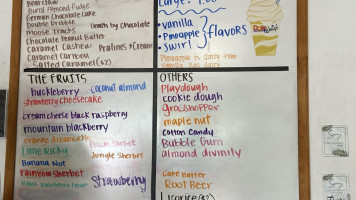 Bear Claw
Burnt Almond Fudge
German Chocolate Cake
Double Dribble
Death by Chocolate
Moose Tracks
Chocolate Peanut Butter
Caramel Cashew
Pralines + Cream
Caramel Caribou
Salted Caramel (G2)
Large
vanilla
Pineapple
swirl
flavors
Pineapple is dairy free
THE FRUITS
huckleberry
coconut almond
strawberry cheesecake
cream cheese black raspberry
mountain blackberry
orange dreamsicle
Lime Ricky
Sherbet
Jungle Sherbet
Banana Nut
rainbow Sherbet
Strawberry
OTHERS
Playdough
cookie dough
grasshopper
maple nut
Cotton Candy
Bubble Gum
almond divinity
Cake Batter
Root Beer
Licorice (G2)